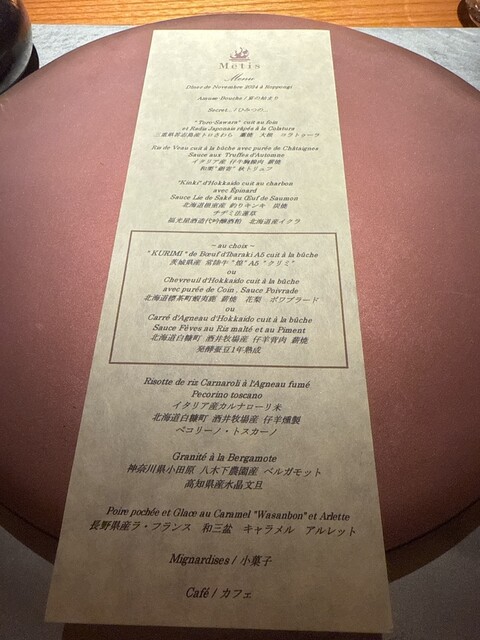 Métis
Menu
Dîner de Novembre 2024 à Roppongi
Amuse-Bouche / 宴の始まり
Secret... / ひみつの...
"Toro-Sawara" cuit au foin
et Radis Japonais râpés à la Colatura
三重県答志島産トロさわら 藁焼 大根 コラトゥーラ
Ris de Veau cuit à la bûche avec purée de Châtaignes
Sauce aux Truffes d'Automne
イタリア産 仔牛胸腺肉 薪焼
和栗 "銀寄" 秋トリュフ
"Kinki" d'Hokkaido cuit au charbon
avec Épinard
Sauce Lie de Saké au Œuf de Saumon
北海道根室産 釣りキンキ 炭焼
チヂミ法蓮草
福光屋酒造代吟醸酒粕 北海道産イクラ
~ au choix ~
"KURIMI" de Bœuf d'Ibaraki A5 cuit à la bûche
茨城県産 常陸牛 "煌" A5 "クリミ"
ou
Chevreuil d'Hokkaido cuit à la bûche
avec purée de Coin . Sauce Poivrade
北海道標茶町蝦夷鹿 薪焼 花梨 ポワブラード
ou
Carré d'Agneau d'Hokkaido cuit à la bûche
Sauce Fèves au Riz malté et au Piment
北海道白糠町 酒井牧場産 仔羊背肉 薪焼
発酵蚕豆1年熟成
Risotte de riz Carnaroli à l'Agneau fumé
Pecorino toscano
イタリア産カルナローリ米
北海道白糠町 酒井牧場産 仔羊燻製
ペコリーノ・トスカーノ
Granité à la Bergamote
神奈川県小田原 八木下農園産 ベルガモット
高知県産水晶文旦
Poire pochée et Glace au Caramel "Wasanbon" et Arlette
長野県産ラ・フランス 和三盆 キャラメル アルレット
Mignardises / 小菓子
Café / カフェ